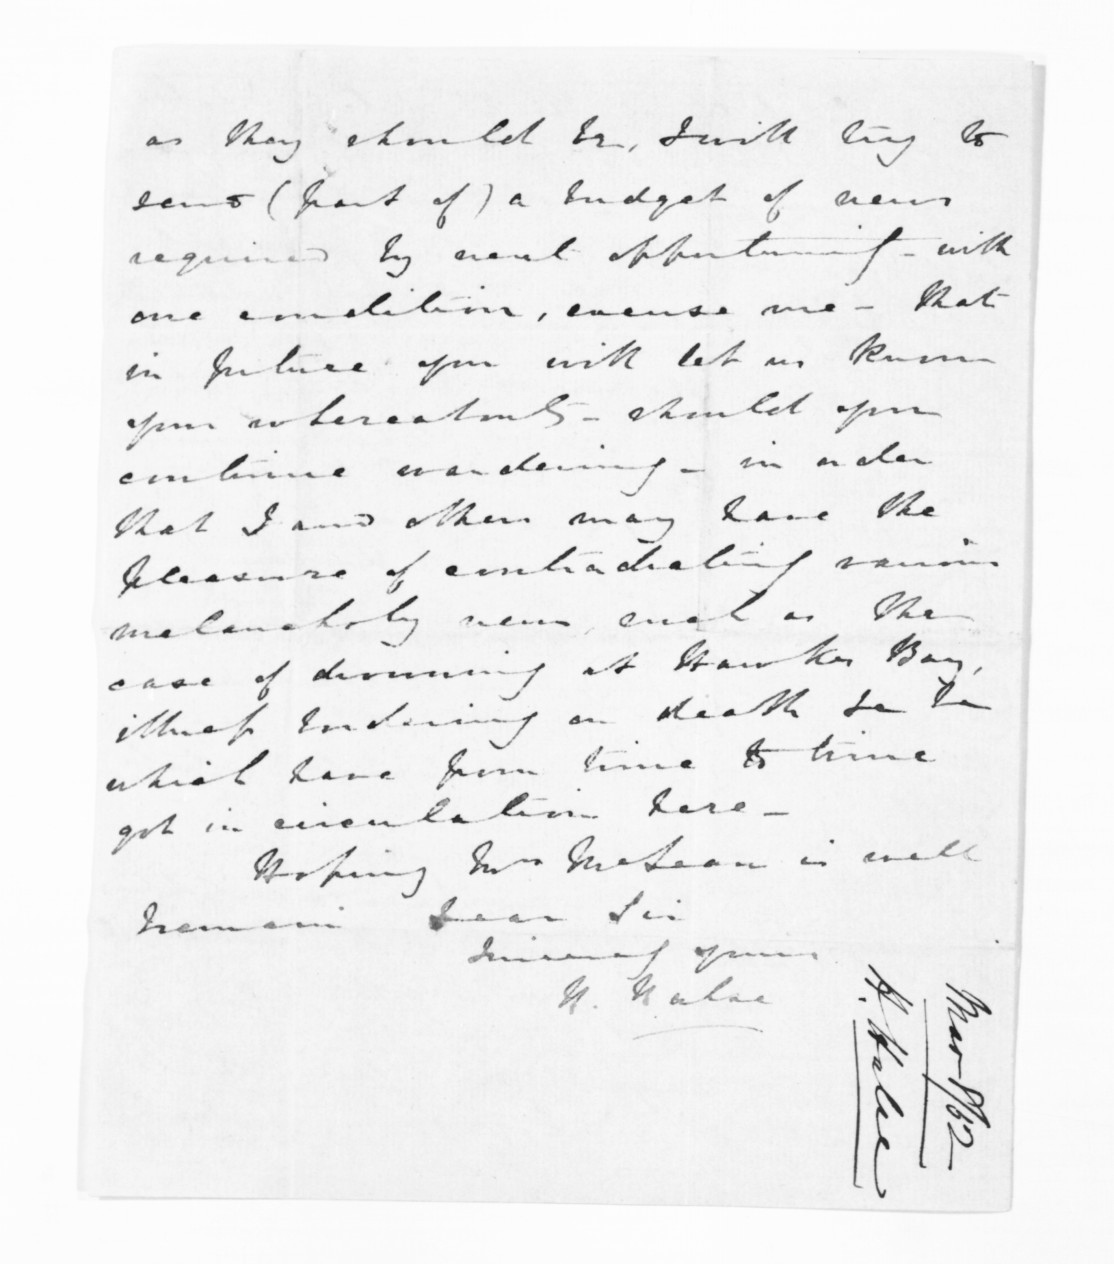 as they should be, I will try to
send (part of) a budget of news
required by next opportunity - with
one condition, excuse me - that
in future you will let us know
your whereabouts - should you
continue wandering - in order
that I and others may have the
pleasure of contradicting various
melancholy news, such as the
case of drowning at Hawkes Bay,
illness bordering on death &c &c
which have from time to time
got in circulation here -
Hoping Mrs McLean is well
I remain Dear Sir
Sincerely yours
H. Halse
Mar 8/52
H. Halse